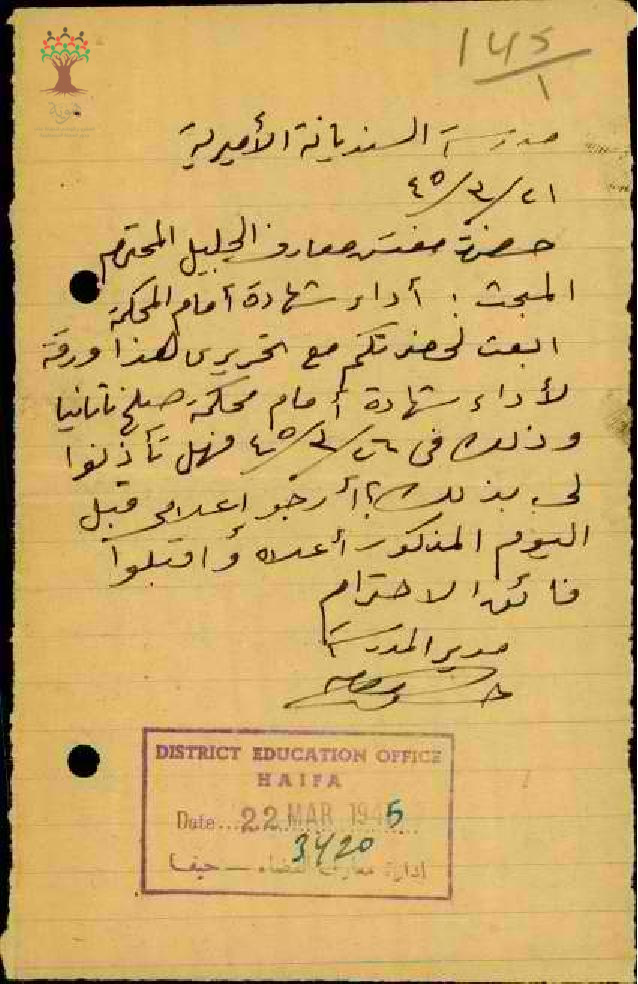 ١٤٥/١
هوية
مدرسة السنديانة الأميرية
٢١/٣/٤٥
حضرة مفتش معارف الجليل المحترم
المبحث : أداء شهادة أمام المحكمة
ابعث لحضرتكم مع تحريري هذا ورقة
لأداء شهادة أمام محكمة صلح ناتانيا
وذلك في ٢٦/٣/٤٥ فهل تأذنوا
لي بذلك ؟ أرجو إعلامي قبل
اليوم المذكور أعلاه وأقبلوا
فائق الاحترام
مدير المدرسة
DISTRICT EDUCATION OFFICE
HAIFA
Date 22 MAR 1945
3420
إدارة معارف القضاء — حيفا